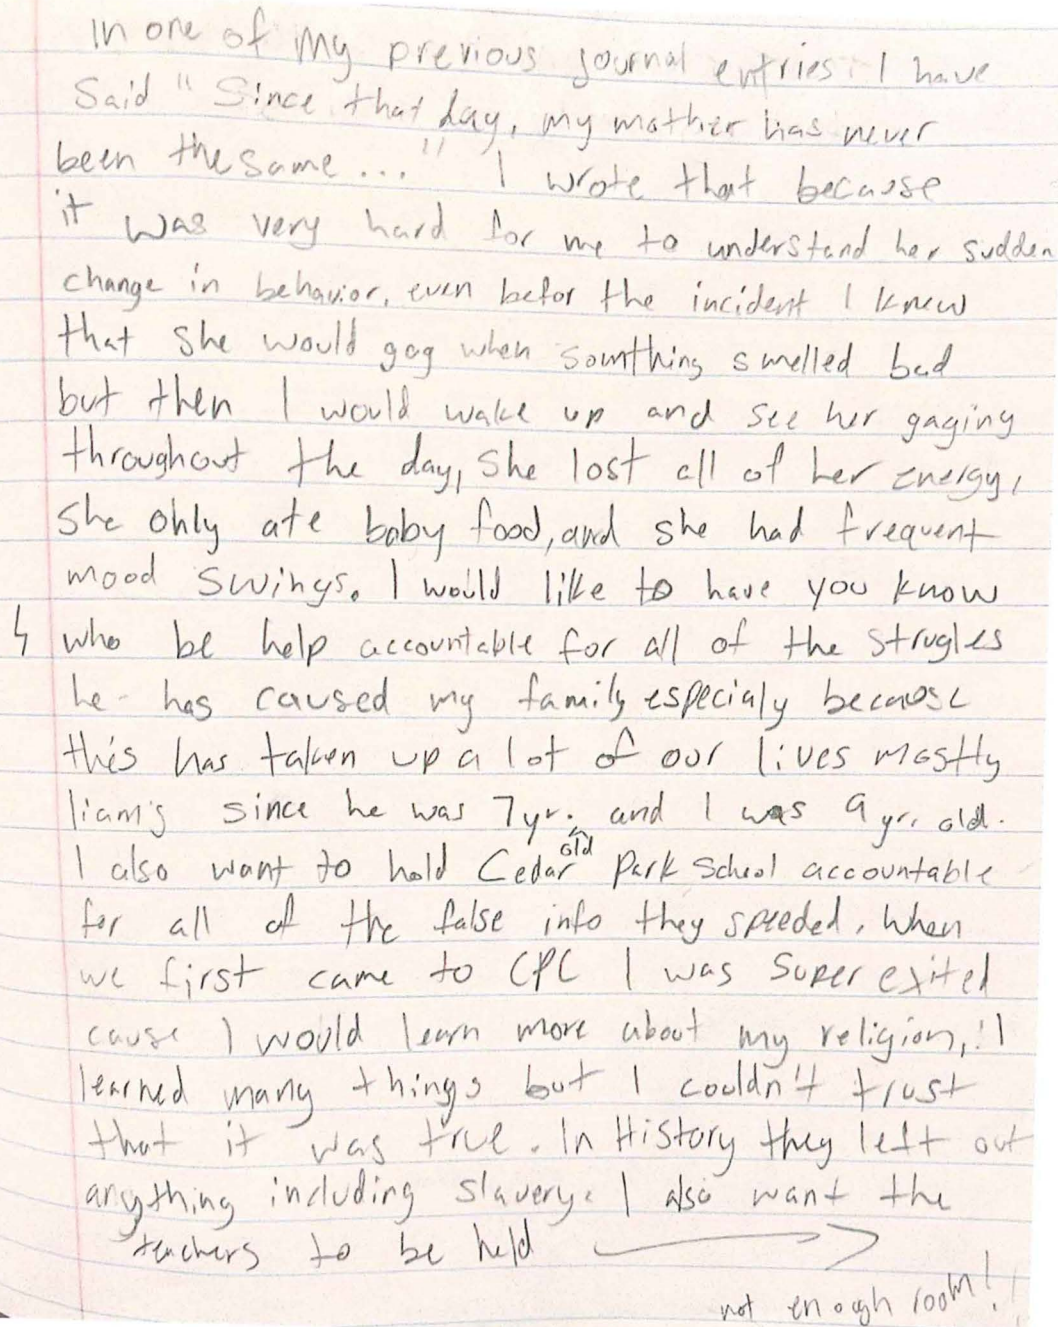 In one of my previous journal entries I have
Said "Since that day, my mother has never
been the same..." I wrote that because
it was very hard for me to understand her sudden
change in behavior, even befor the incident I knew
that she would gag when somthing smelled bad
but then I would wake up and see her gaging
throughout the day, She lost all of her energy,
She only ate baby food, and she had frequent
mood swings. I would like to have you know
who be help accountable for all of the strugles
he has caused my family especialy because
this has taken up a lot of our lives mostly
liam's since he was 7yr. and I was 9 yr. old.
old
I also want to hold Cedar Park School accountable
for all of the false info they speeded. When
we first came to CPC I was Super exited
cause I would learn more about my religion, I
learned many things but I couldn't trust
that it was true. In History they left out
anything including slavery. I also want the
teachers to be held
not enough room!